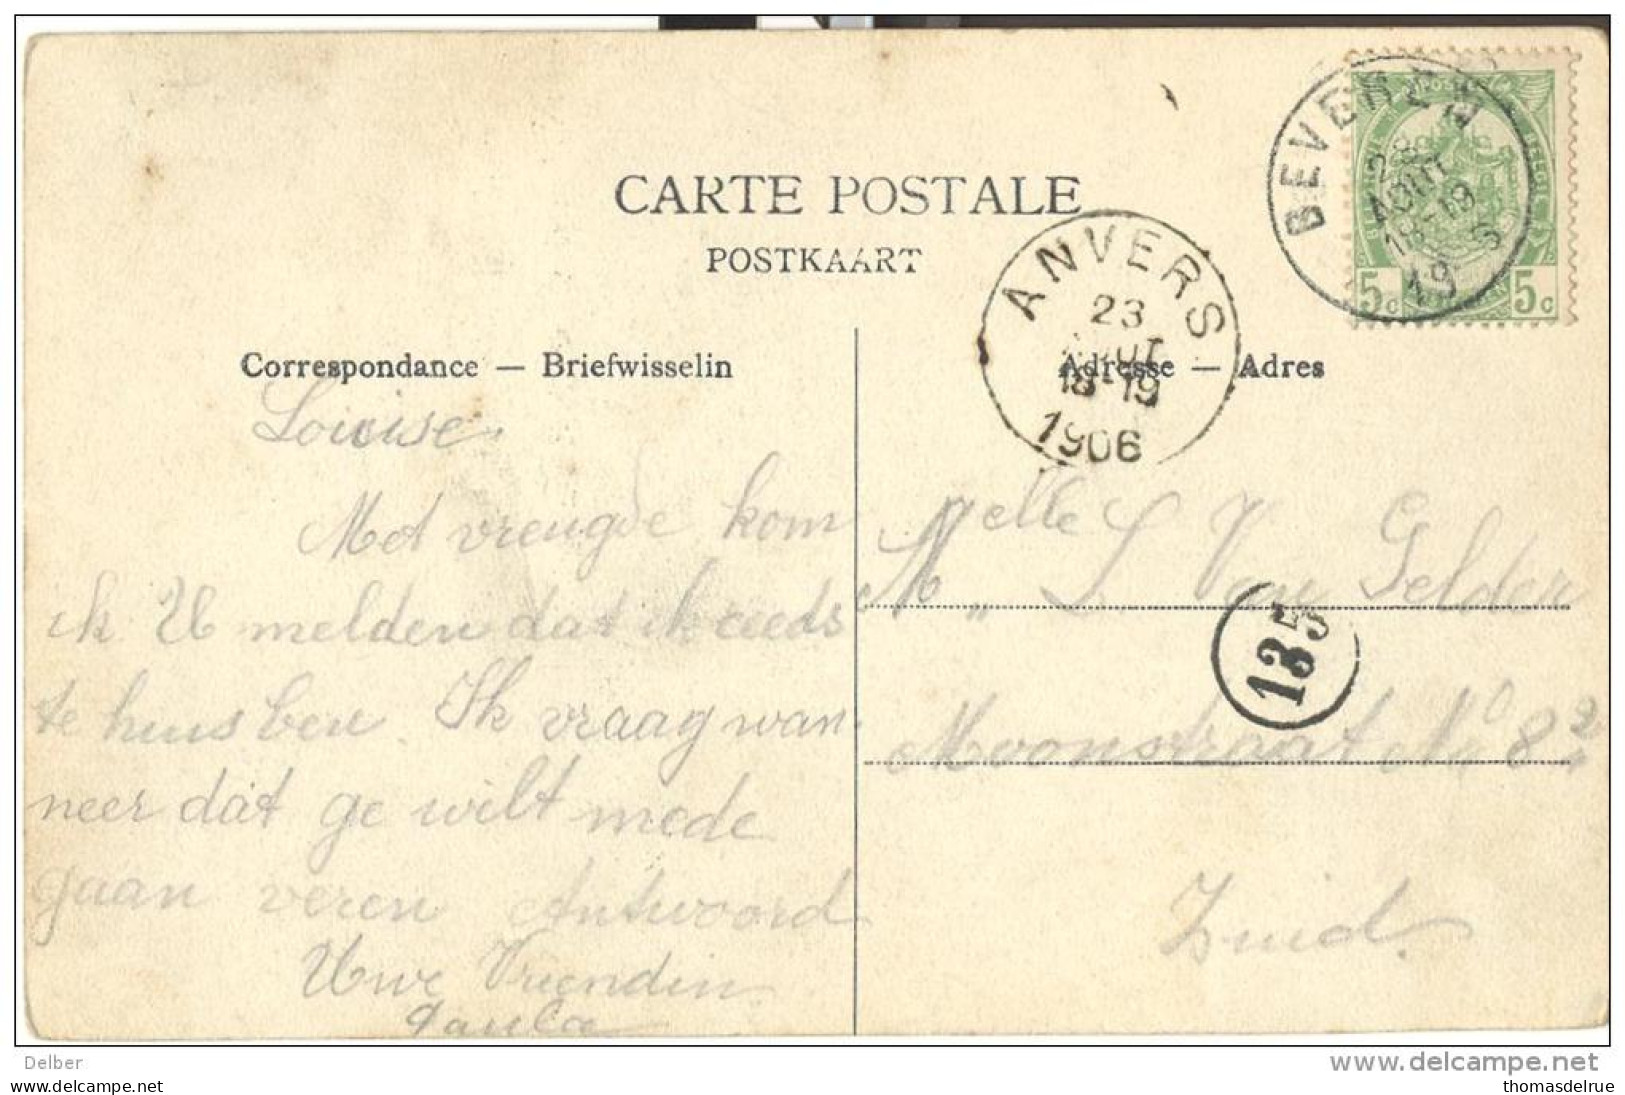 CARTE POSTALE
POSTKAART
BEVEREN
28
AOUT
18-19
19
S
5c 5c
ANVERS
23
AOUT
18-19
1906
Correspondance — Briefwisselin
Adresse — Adres
Louise
Met vreugde kom
ik U melden dat ik reeds
te huis ben. Ik vraag wan
neer dat ge wilt mede
gaan varen Antwoord
Uwe Vriendin
Paula
Mejelle L Van Gelder
Moonstraat No 82
Zuid.
135
Delber
delcampe.net
thomasdelrue